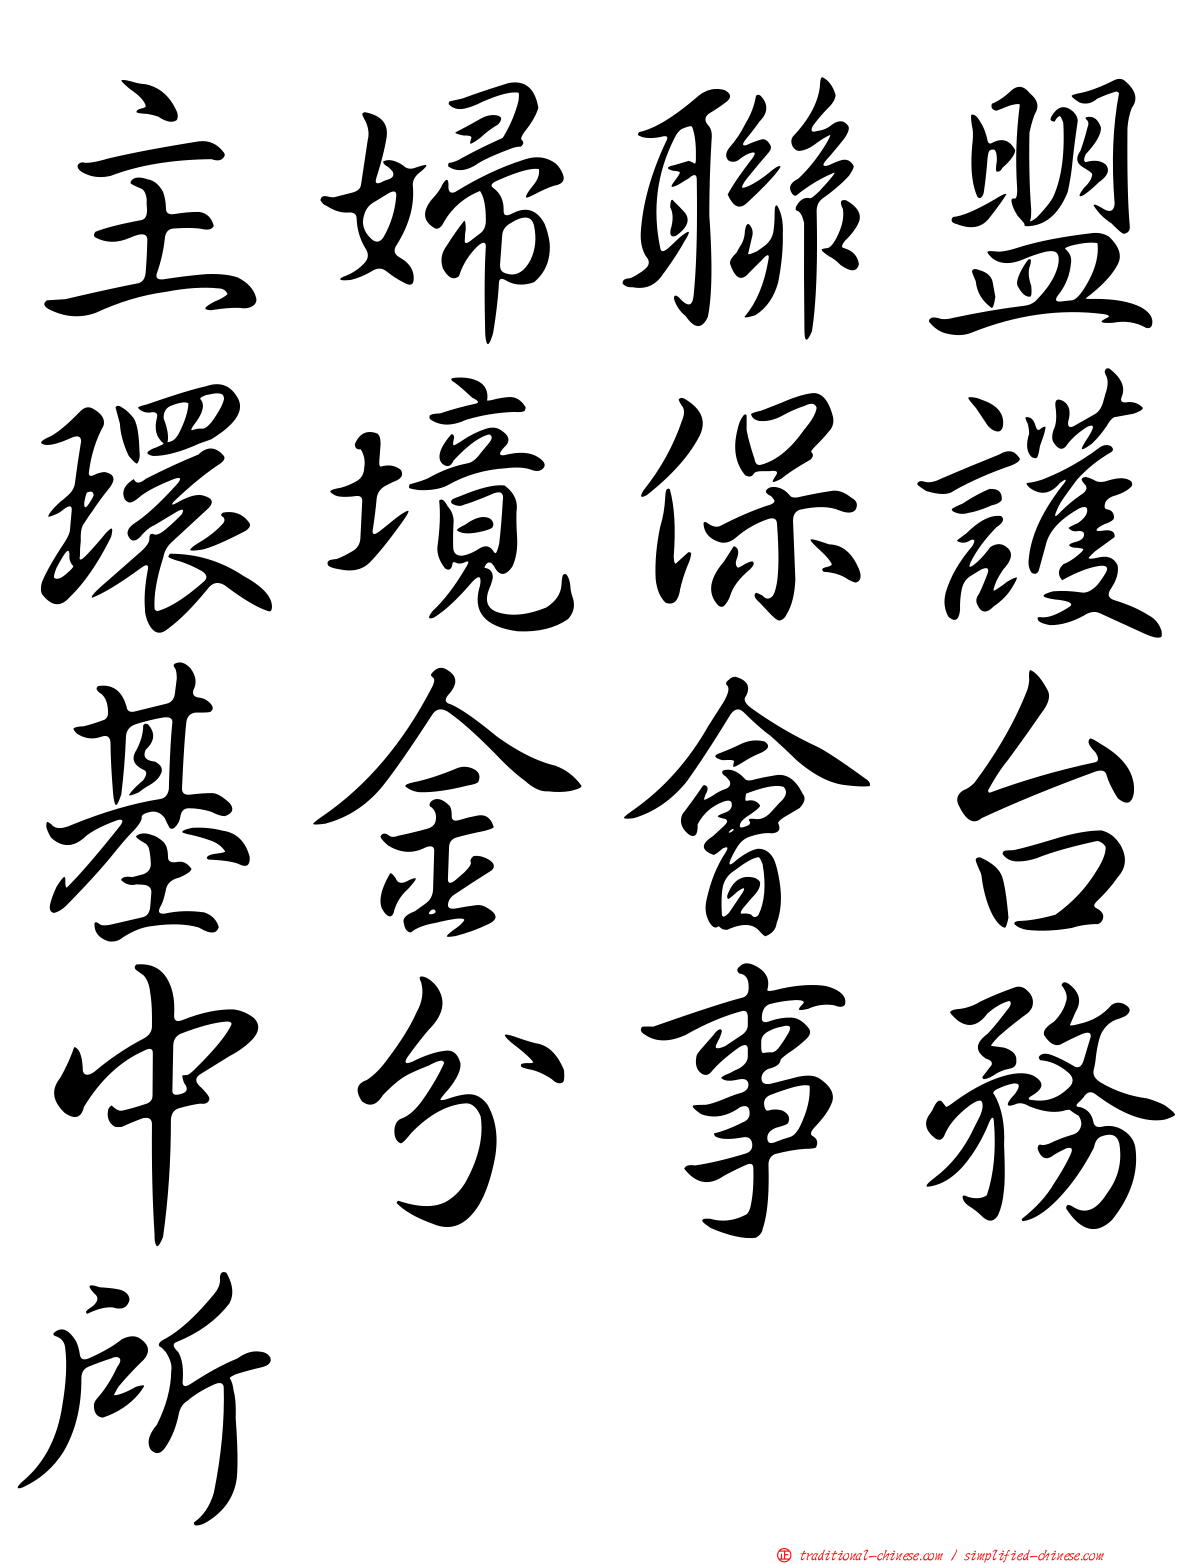 主婦聯盟
環境保護
基金會台
中分事務
所
正 traditional-chinese.com / simplified-chinese.com